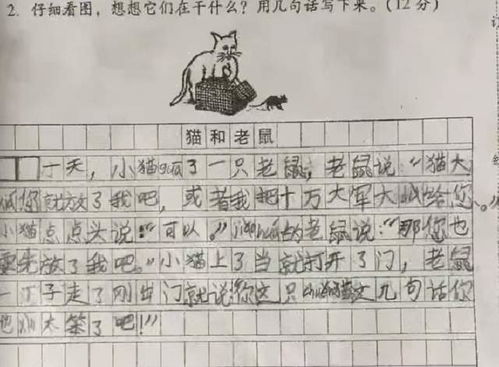 2. 仔细看图，想想它们在干什么？用几句话写下来。(12分)
猫和老鼠
一天，小猫 了一只老鼠，老鼠说："猫大
您就放了我吧，或者我把十万大军大 给您。
小猫点点头说："可以。" 的老鼠说："那您也
要先放了我吧。"小猫上了当就打开了门，老鼠
一下子走了刚出门就说你这只 猫 几句话你
也 太笨了吧！"